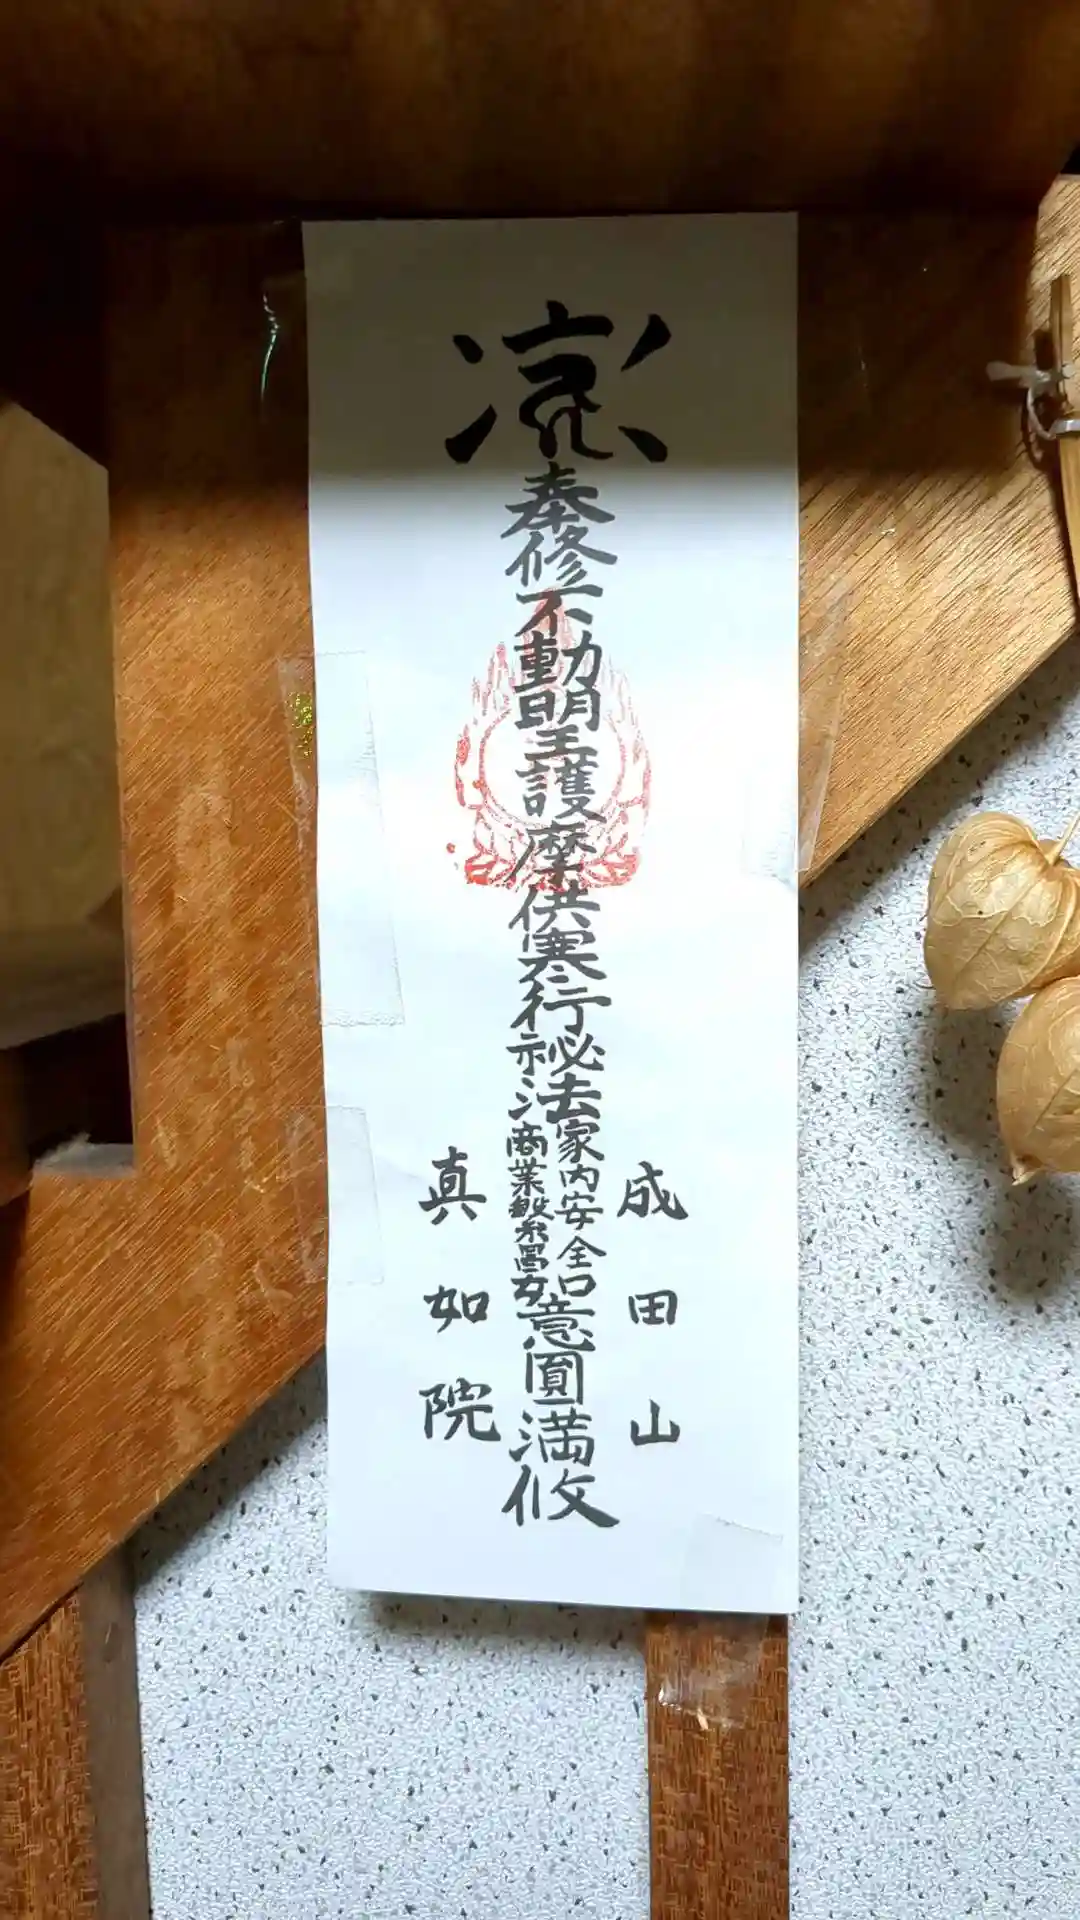 成田山
奉修不動明王護摩供寒行祕法
家内安全
商業繁昌
如意圓満攸
真如院